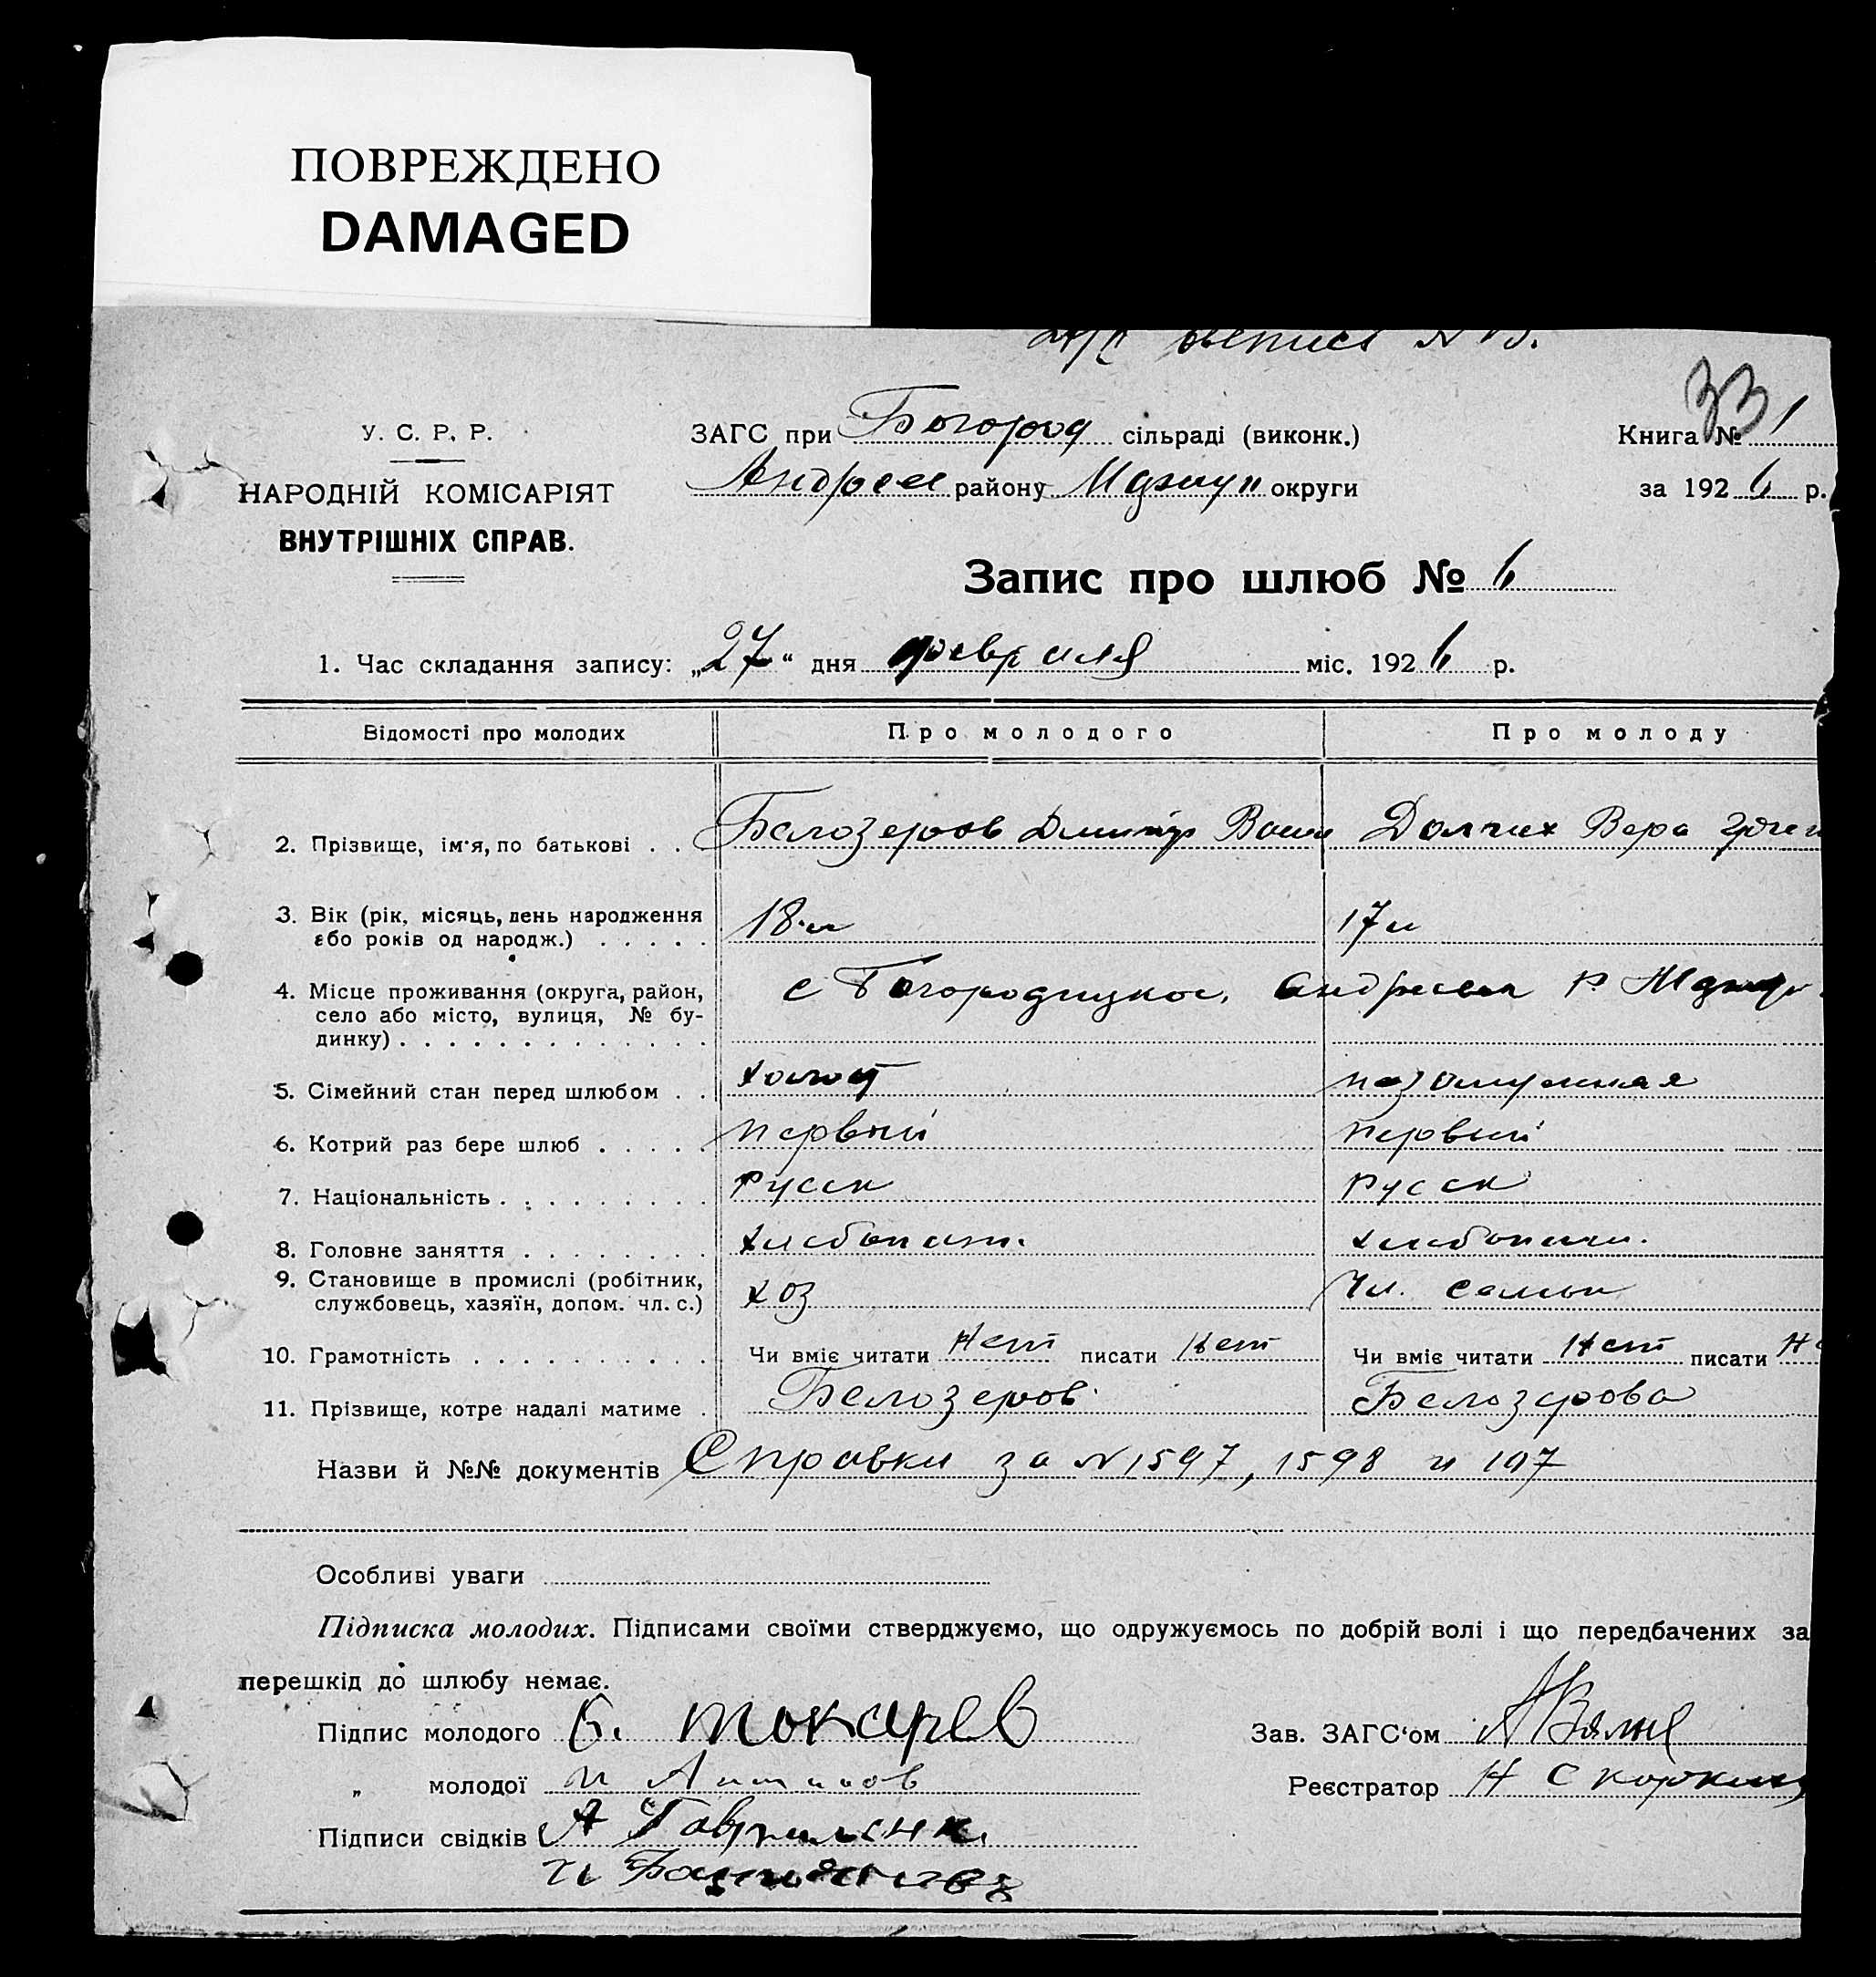 ПОВРЕЖДЕНО
DAMAGED
33
У. С. Р. Р.
НАРОДНІЙ КОМІСАРІЯТ
ВНУТРІШНІХ СПРАВ.
ЗАГС при Богород сільраді (виконк.)
Андреев району округи
Книга № 1
за 1926 р.
Запис про шлюб № 6
1. Час складання запису: „27“ дня февраля міс. 1926 р.
Відомості про молодих Про молодого Про молоду
2. Прізвище, ім'я, по батькові . . Белозеров Дмитр Долгих Вера
3. Вік (рік, місяць, день народження 18 л 17 л
або років од народж.) . . . . .
4. Місце проживання (округа, район, с Богородицкое, Андреевск р.
село або місто, вулиця, № бу-
динку) . . . . . . . . . . . . .
5. Сімейний стан перед шлюбом . . холост незамужняя
6. Котрий раз бере шлюб . . . . . первый первый
7. Національність . . . . . . . . . русск русск
8. Головне заняття . . . . . . . . хлебопаш. хлебопаш.
9. Становище в промислі (робітник, хоз Чл. семьи
службовець, хазяїн, допом. чл. с.)
10. Грамотність . . . . . . . . . . Чи вміє читати Нет писати Нет Чи вміє читати Нет писати Не
11. Прізвище, котре надалі матиме . Белозеров Белозерова
Назви й №№ документів Справки за № 1597, 1598 и 107
Особливі уваги
Підписка молодих. Підписами своїми стверджуємо, що одружуємось по добрій волі і що передбачених за
перешкід до шлюбу немає.
Підпис молодого Токарев
Зав. ЗАГС'ом
„ молодої
Реєстратор Н
Підписи свідків А